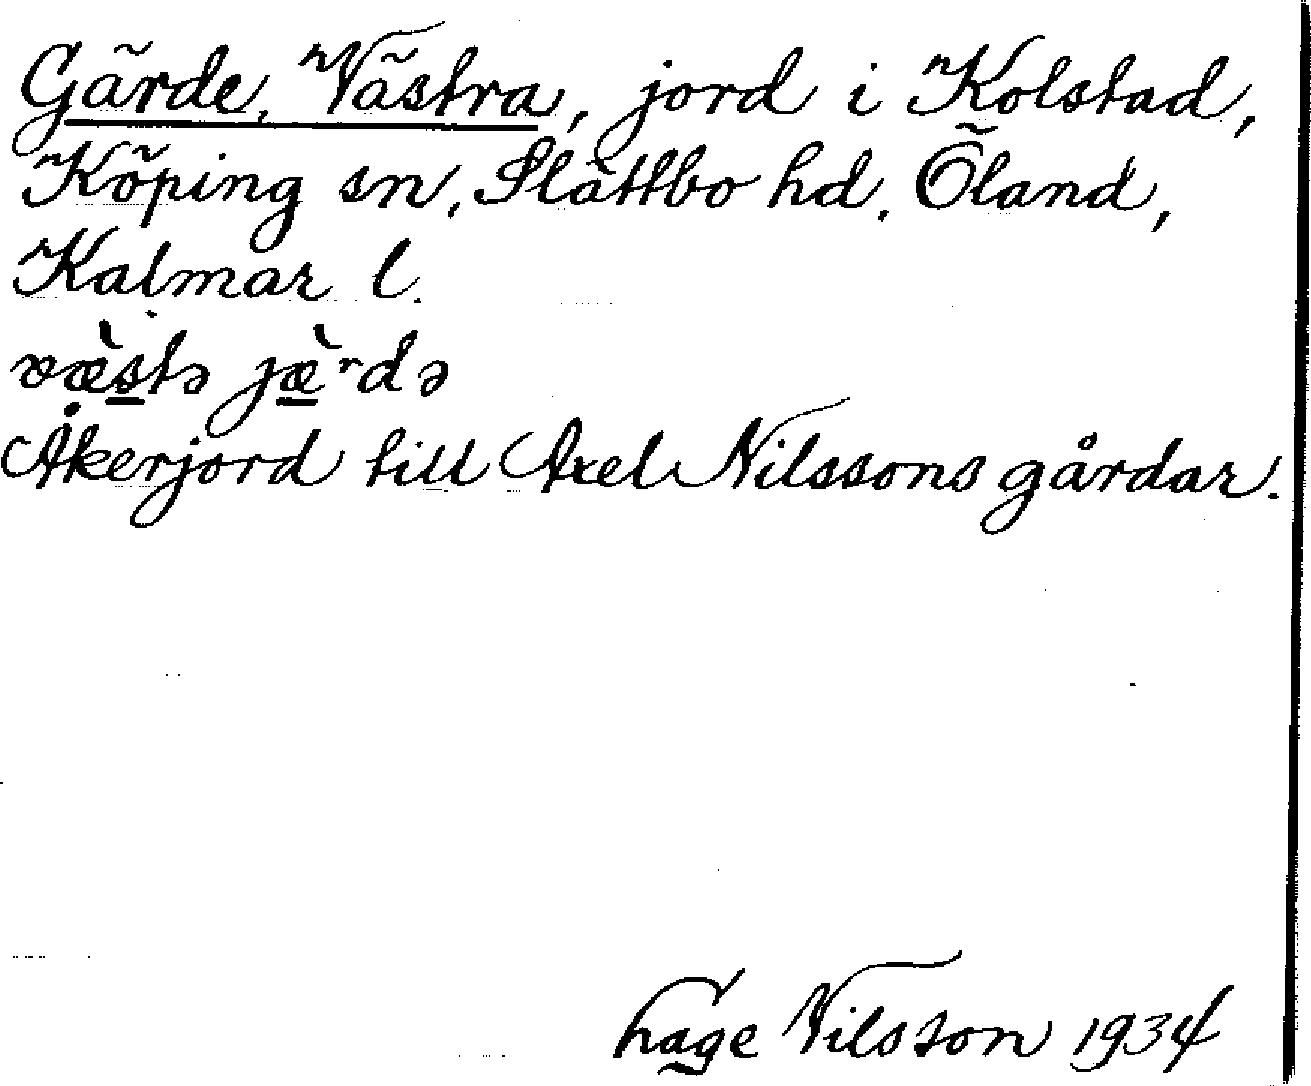 Gärde, Västra, jord i Kolstad,
Köping sn, Slättbo hd, Öland,
Kalmar l.
væ̀stə jæ̀rdə
Åkerjord till Axel Nilssons gårdar.
Hage Nilsson 1934